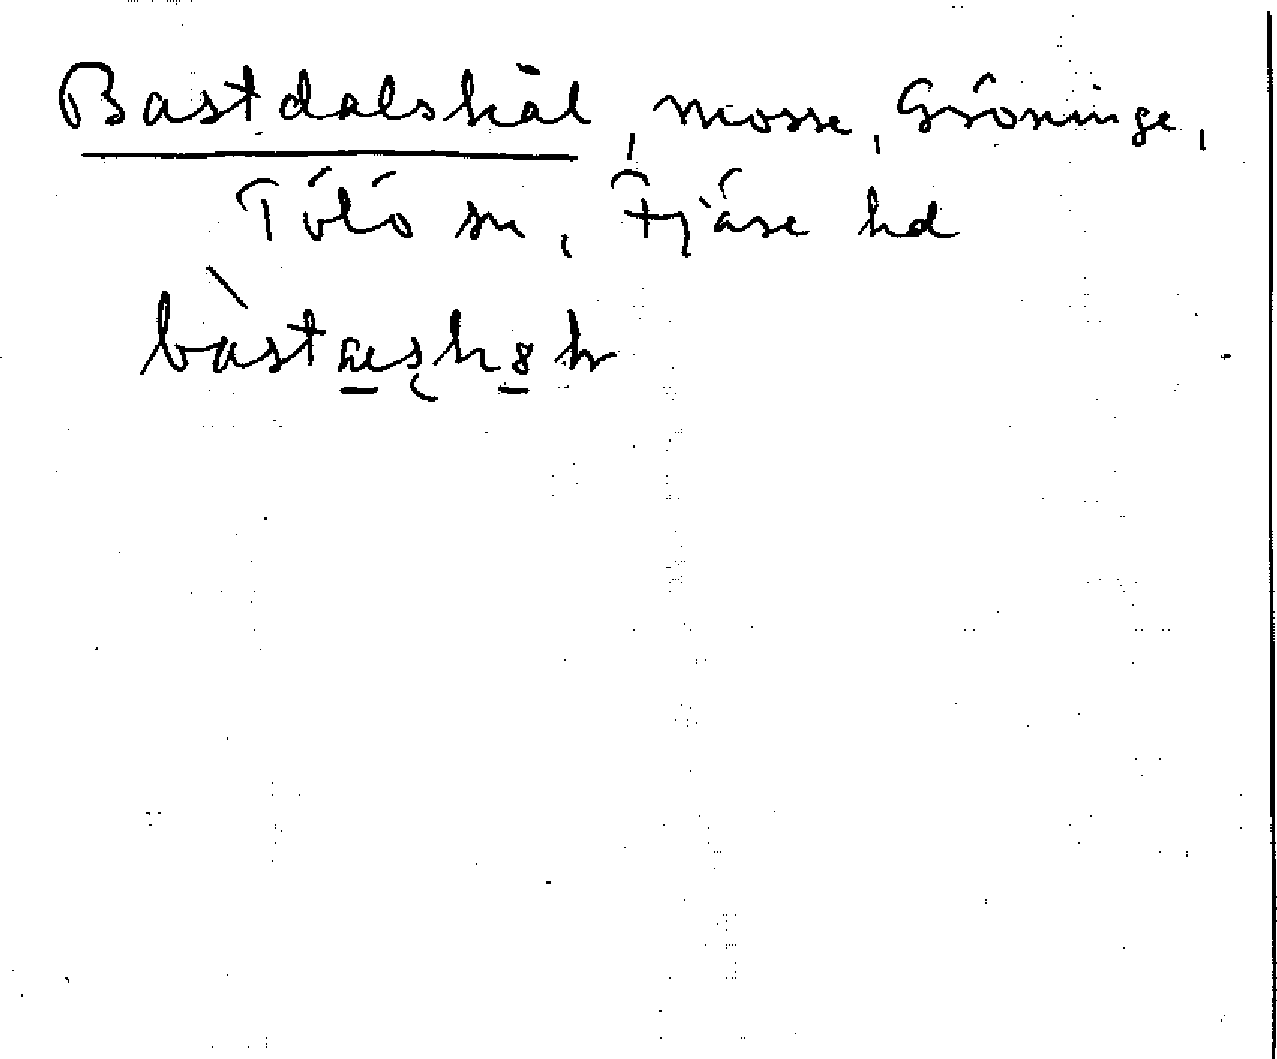 Bastdalskäl, mosse, Gröninge,
Tölö sn, Fjäre hd